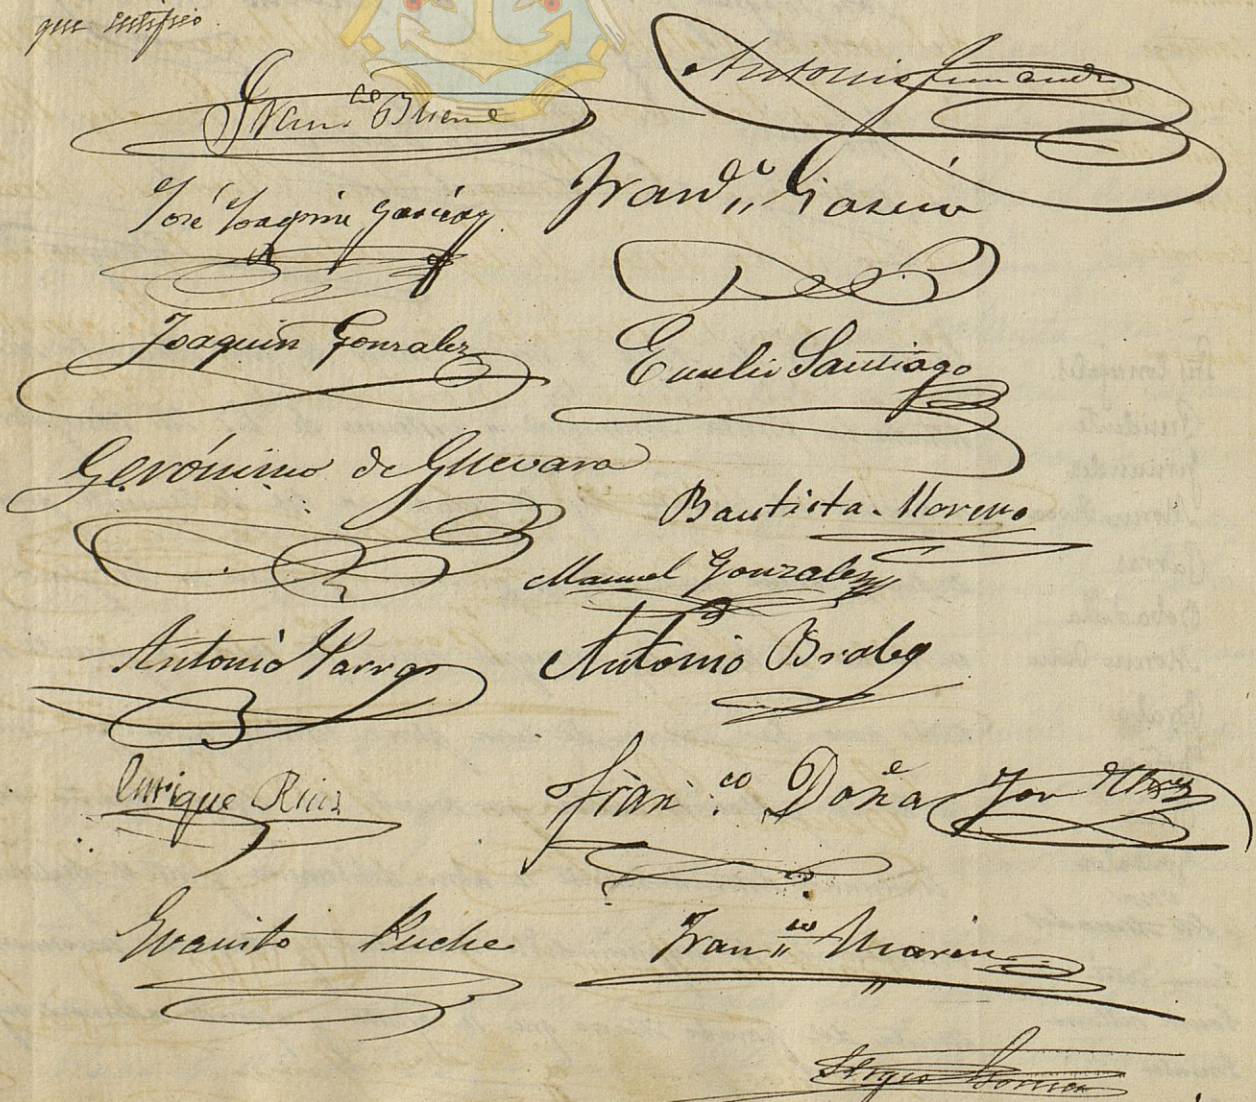 que certifico.
Fran.co Buene
Antonio Fernande
José Joaquin Garcia
Frand,,o Garcia
Joaquin Gonzalez
Emilio Santiago
Gerónimo de Guevara
Bautista Moreno
Manuel Gonzalez
Antonio Parras
Antonio Brabo
Enrique Rios
Fran.co Doña
Evaristo Puche
Fran,,co Marin
Sergio